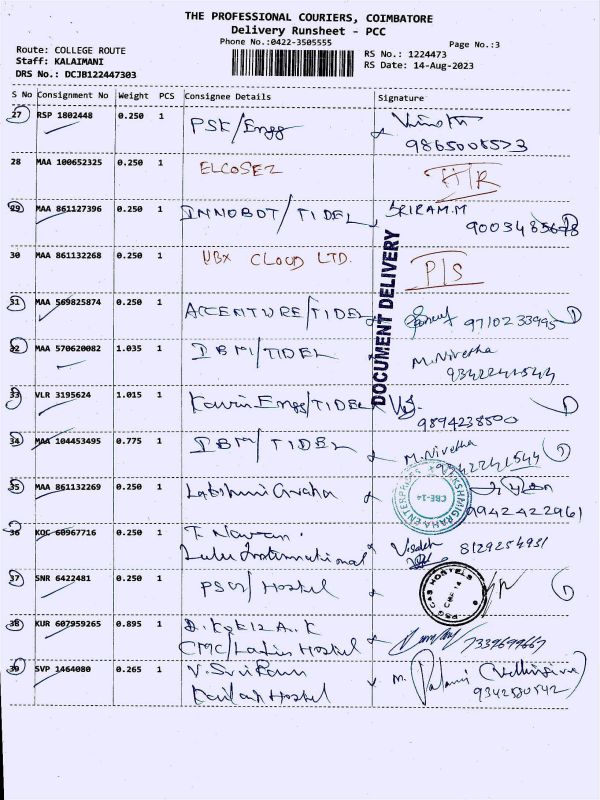 THE PROFESSIONAL COURIERS, COIMBATORE
Delivery Runsheet - PCC
Phone No.:0422-3505555
Page No.:3
Route: COLLEGE ROUTE
Staff: KALAIMANI
DRS No.: DCJB122447303
RS No.: 1224473
RS Date: 14-Aug-2023
S No Consignment No Weight PCS Consignee Details Signature
27 RSP 1802448 0.250 1 PSK/Engg
28 MAA 100652325 0.250 1 ELCOSEZ
29 MAA 861127396 0.250 1 INNOBOT/TIDEL SRIRAM.M
30 MAA 861132268 0.250 1 UBX CLOUD LTD. P/S
31 MAA 569825874 0.250 1 ACCENTURE/TIDEL 9710233995
DOCUMENT DELIVERY
32 MAA 570620082 1.035 1 IBM/TIDEL M.Nivetha
9342241544
33 VLR 3195624 1.015 1 Kavin Engg/TIDEL
9894238500
34 MAA 104453495 0.775 1 IBM/TIDEL M.Nivetha
9342241544
35 MAA 861132269 0.250 1 Lakshmi Graha
9942422961
LAKSHMIGRAHA ENTERPRISES
CBE-14
36 KOC 60967716 0.250 1 T. Navan
Lulu International 8129254931
37 SNR 6422481 0.250 1 PSG/Hostel
PSG CAS HOSTELS
CBE 14
38 KUR 607959265 0.895 1
CMC/Ladies Hostel 7339699667
39 SVP 1464080 0.265 1 V. Sriram
Kailash Hostel M. Palani
9342530542